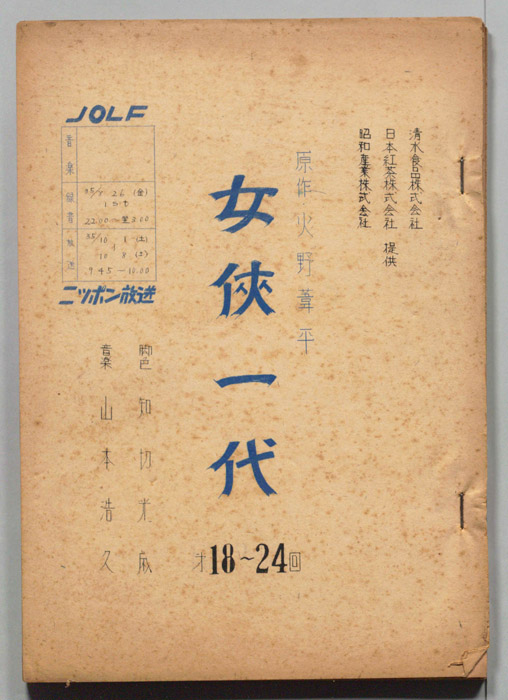 清水食品株式会社
日本紅茶株式会社 提供
昭和産業株式会社
原作 火野葦平
女俠一代
才18~24回
JOLF
音楽
録音
35/ 26 (金)
22.00～翌2.00
放送
35/10 1 (土)
10 8 (土)
9.45—10.00
ニッポン放送
脚色 知切光蔵
音楽 山本浩久